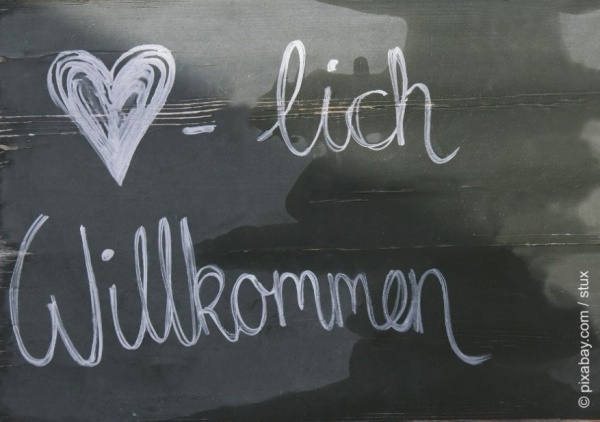 - lich
Willkommen
© pixabay.com / stux